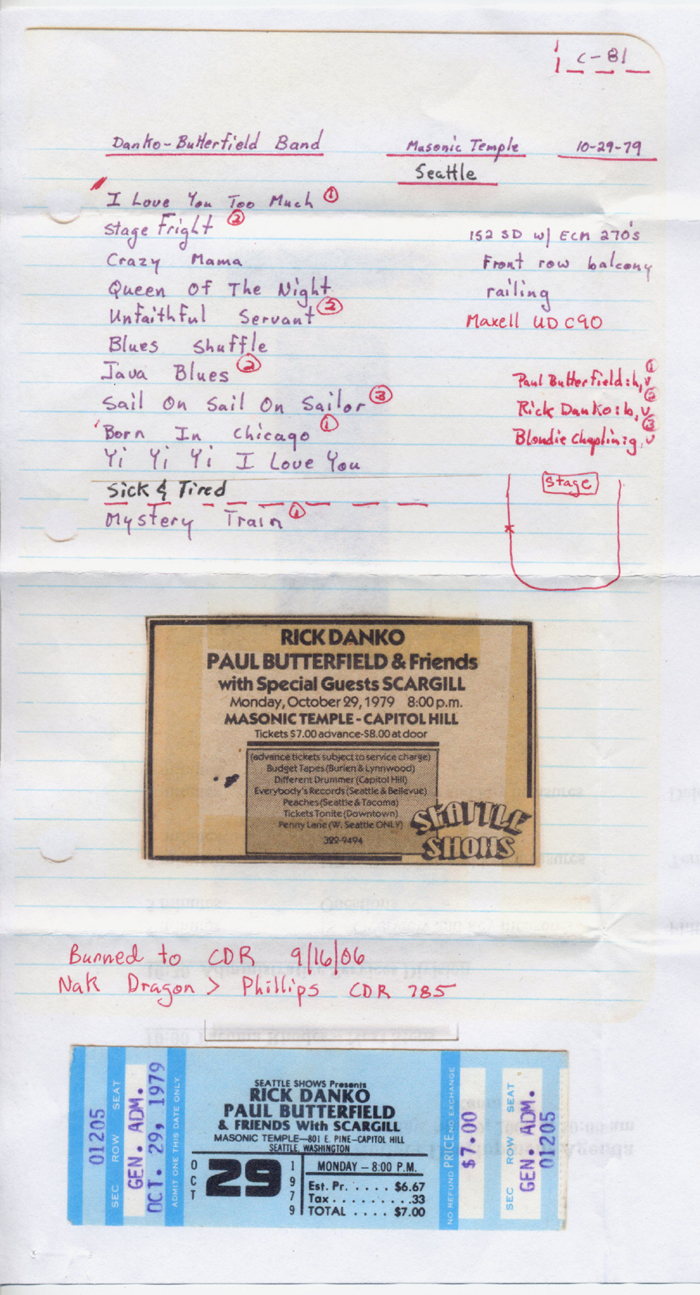 C-81
Danko-Butterfield Band Masonic Temple 10-29-79
Seattle
I Love You Too Much ①
Stage Fright ②
Crazy Mama
Queen Of The Night
Unfaithful Servant ②
Blues Shuffle
Java Blues ②
Sail On Sail On Sailor ③
Born In Chicago ①
Yi Yi Yi I Love You
Sick & Tired
Mystery Train ①
152 SD w/ ECM 270's
Front row balcony
railing
Maxell UD C90
Paul Butterfield: h, v ①
Rick Danko: b, v ②
Blondie Chaplin: g, v ③
Stage
x
RICK DANKO
PAUL BUTTERFIELD & Friends
with Special Guests SCARGILL
Monday, October 29, 1979 8:00 p.m.
MASONIC TEMPLE - CAPITOL HILL
Tickets $7.00 advance-$8.00 at door
(advance tickets subject to service charge)
Budget Tapes (Burien & Lynnwood)
Different Drummer (Capitol Hill)
Everybody's Records (Seattle & Bellevue)
Peaches (Seattle & Tacoma)
Tickets Tonite (Downtown)
Penny Lane (W. Seattle ONLY)
329-9494
SEATTLE
SHOWS
Burned to CDR 9/16/06
Nak Dragon > Phillips CDR 785
01205
SEC ROW SEAT
GEN. ADM.
OCT. 29, 1979
ADMIT ONE THIS DATE ONLY
SEATTLE SHOWS Presents
RICK DANKO
PAUL BUTTERFIELD
& FRIENDS With SCARGILL
MASONIC TEMPLE—801 E. PINE—CAPITOL HILL
SEATTLE, WASHINGTON
OCT 29 1979
MONDAY — 8:00 P.M.
Est. Pr. . . . . . $6.67
Tax . . . . . . . . . .33
TOTAL . . . . $7.00
NO REFUND PRICE NO EXCHANGE
$7.00
SEC ROW SEAT
GEN. ADM.
01205